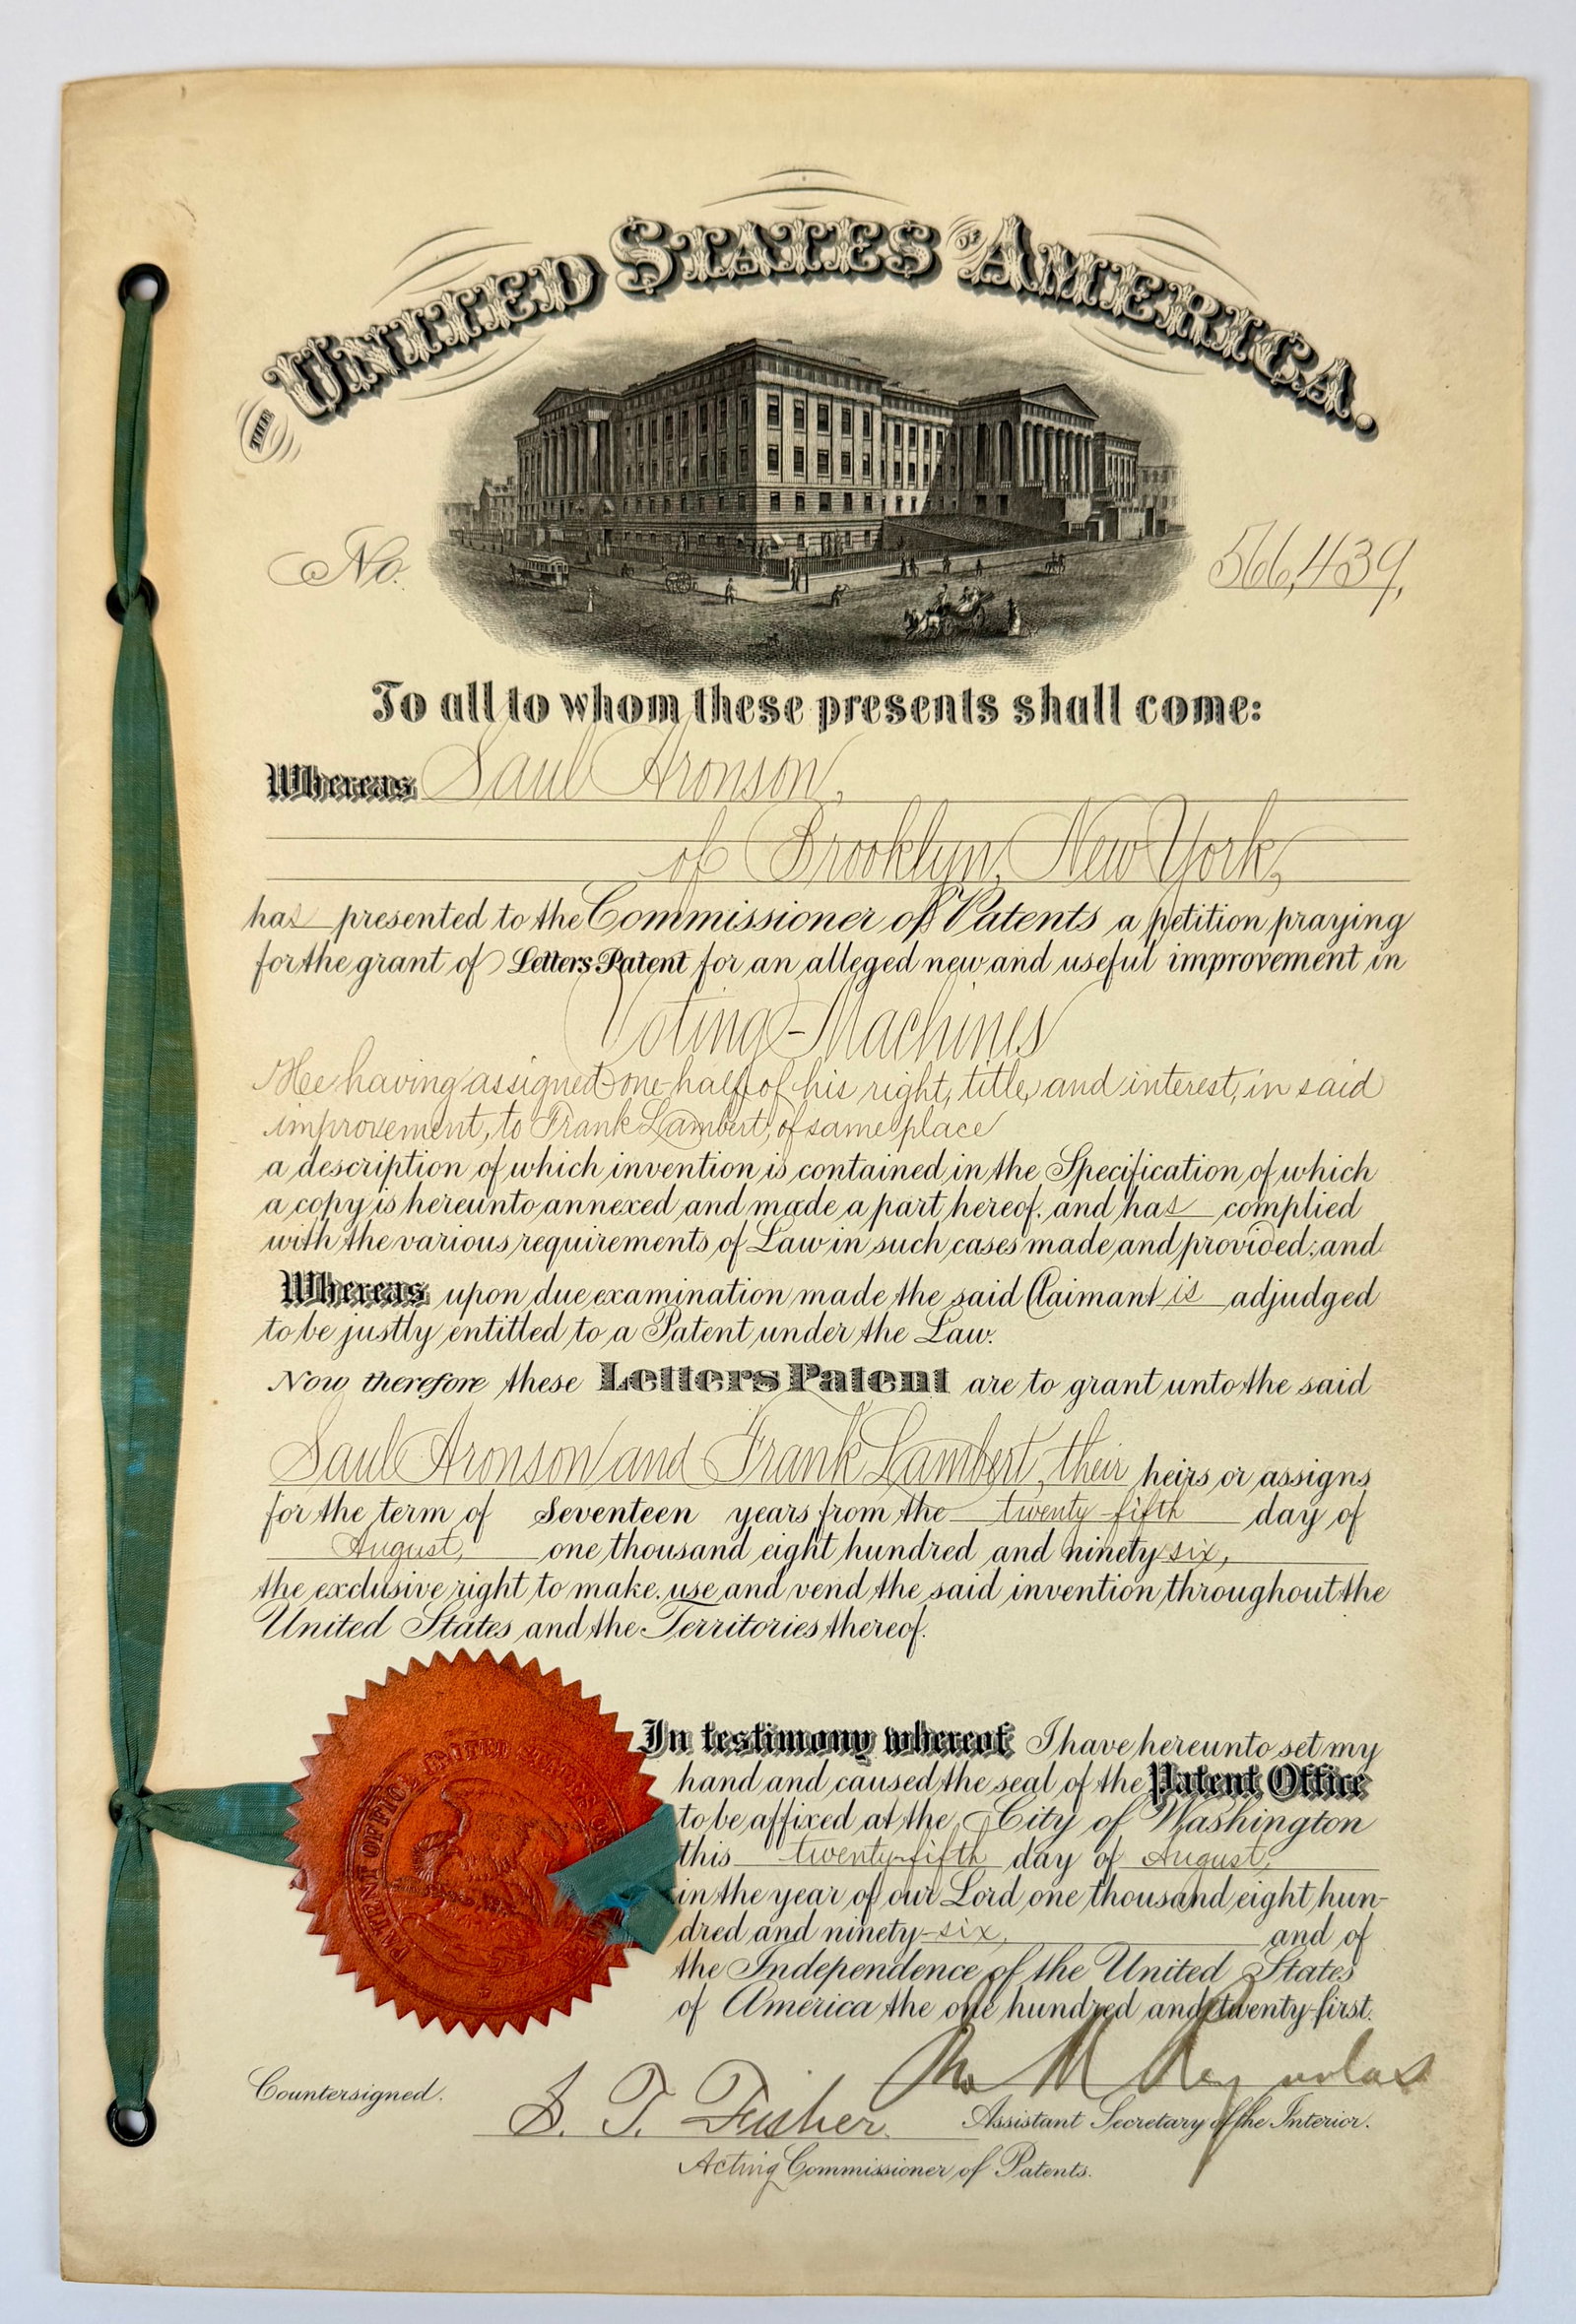 THE UNITED STATES OF AMERICA.
No. 566,439,
To all to whom these presents shall come:
Whereas Saul Aronson,
of Brooklyn, New York,
has presented to the Commissioner of Patents a petition praying
for the grant of Letters Patent for an alleged new and useful improvement in
Voting-Machines
He having assigned one-half of his right, title, and interest, in said
improvement, to Frank Lambert, of same place
a description of which invention is contained in the Specification of which
a copy is hereunto annexed and made a part hereof, and has complied
with the various requirements of Law in such cases made and provided; and
Whereas upon due examination made the said Claimant is adjudged
to be justly entitled to a Patent under the Law.
Now therefore these Letters Patent are to grant unto the said
Saul Aronson and Frank Lambert, their heirs or assigns
for the term of Seventeen years from the twenty-fifth day of
August, one thousand eight hundred and ninety-six,
the exclusive right to make, use and vend the said invention throughout the
United States and the Territories thereof.
In testimony whereof I have hereunto set my
hand and caused the seal of the Patent Office
to be affixed at the City of Washington
this twenty-fifth day of August,
in the year of our Lord one thousand eight hun-
dred and ninety-six, and of
the Independence of the United States
of America the one hundred and twenty-first.
PATENT OFFICE UNITED STATES OF
Reynolds
Countersigned. S. T. Fisher Assistant Secretary of the Interior.
Acting Commissioner of Patents.